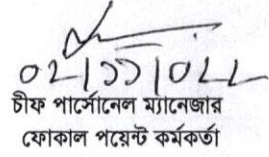 ০২|১১|০২২
চীফ পার্সোনেল ম্যানেজার
ফোকাল পয়েন্ট কর্মকর্তা